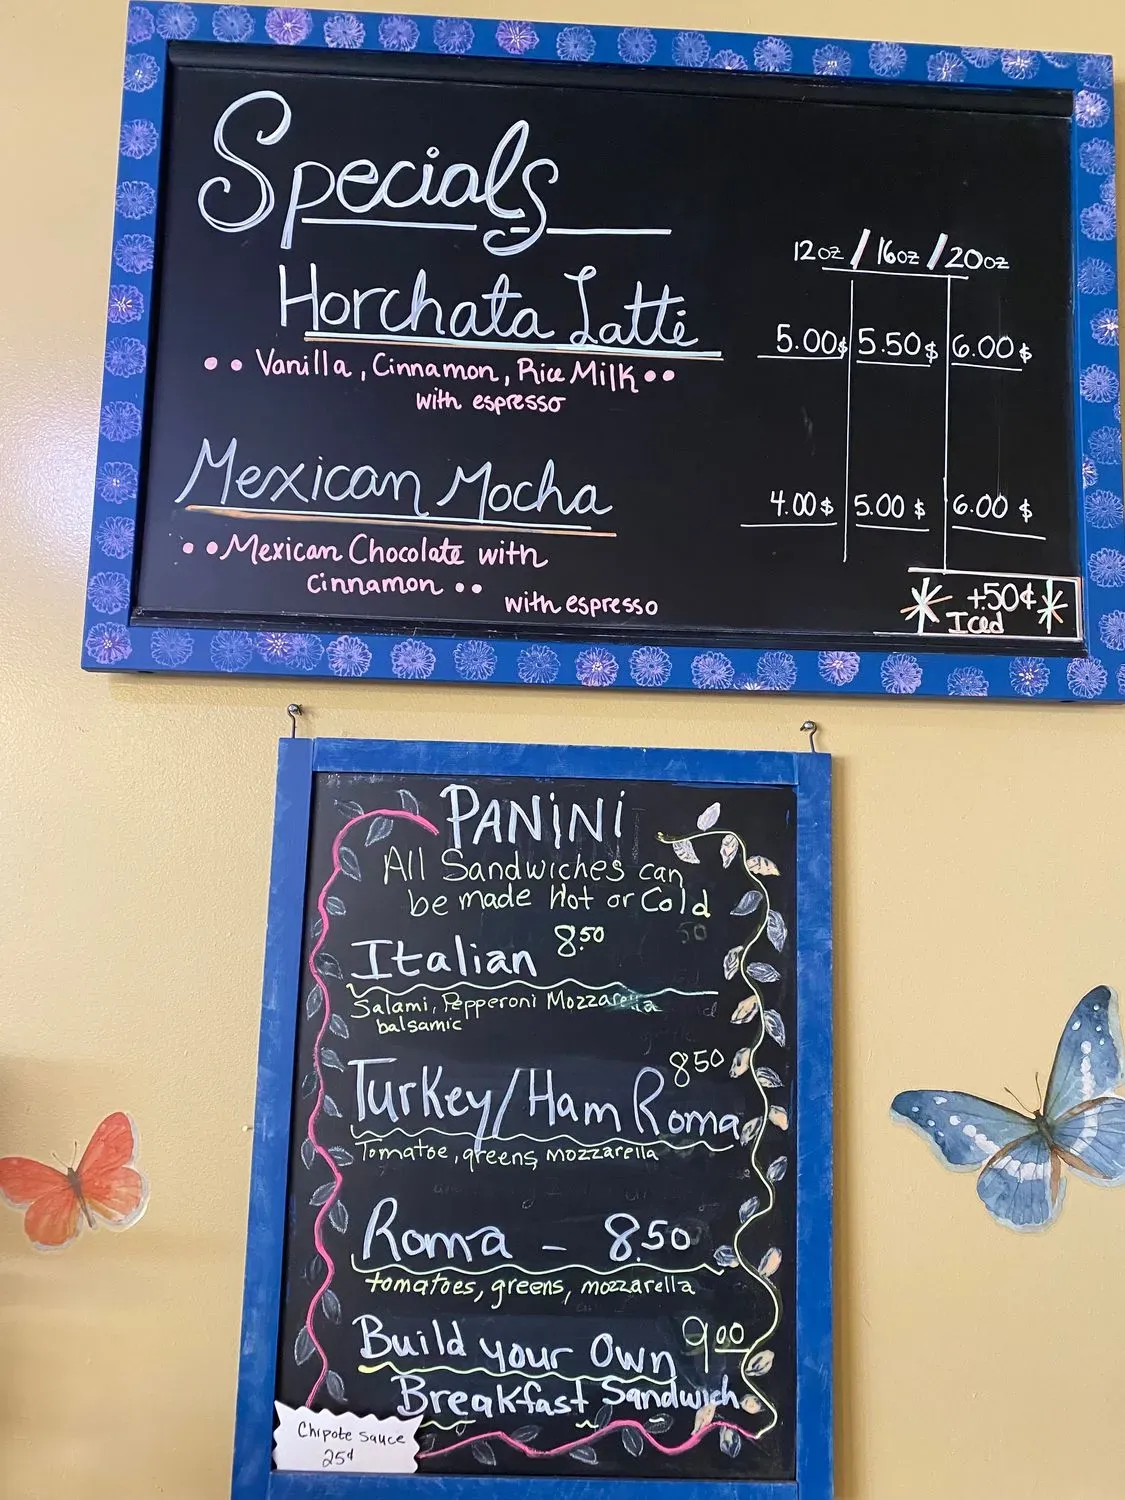 Specials
12oz / 16oz / 20oz
Horchata Latte 5.00$ 5.50$ 6.00$
•• Vanilla, Cinnamon, Rice Milk ••
with espresso
Mexican Mocha 4.00$ 5.00$ 6.00$
•• Mexican Chocolate with
cinnamon ••
with espresso
+.50¢
Iced
PANiNi
All Sandwiches can
be made Hot or Cold
Italian 8.50
Salami, Pepperoni Mozzarella
balsamic
8.50
Turkey/Ham Roma
Tomatoe, greens, mozzarella
Roma - 8.50
tomatoes, greens, mozzarella
Build your Own 9.00
Breakfast Sandwich
Chipote sauce
25¢